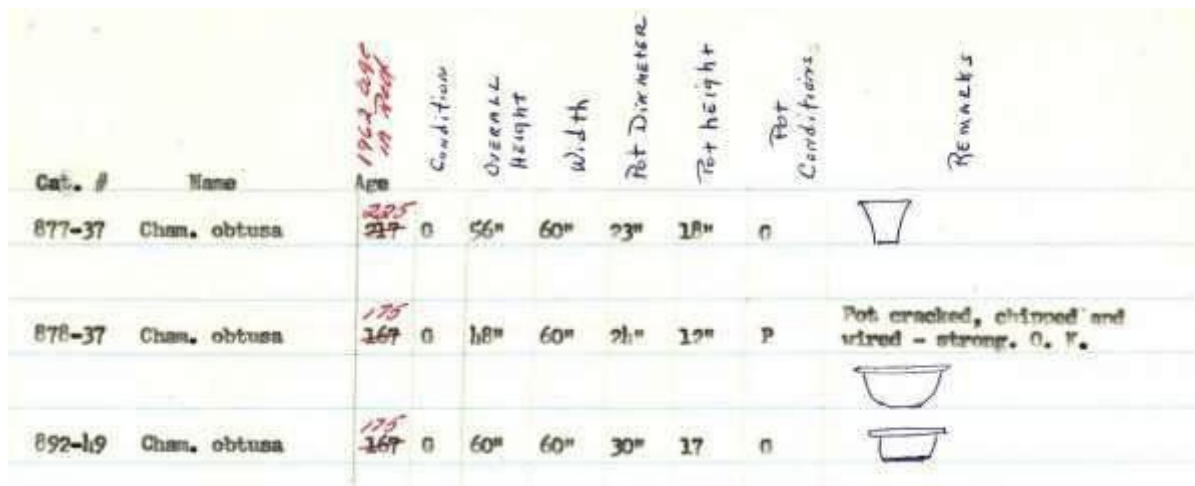 1962 age in Red
Condition
OVERALL HEIGHT
Width
Pot DIAMETER
Pot height
Pot Conditions
REMARKS
Cat. # Name Age
225
877-37 Cham. obtusa 217 G 56" 60" 23" 18" G
175
878-37 Cham. obtusa 167 G 48" 60" 24" 12" P Pot cracked, chipped and
wired - strong. O. K.
175
892-49 Cham. obtusa 167 G 60" 60" 30" 17 G